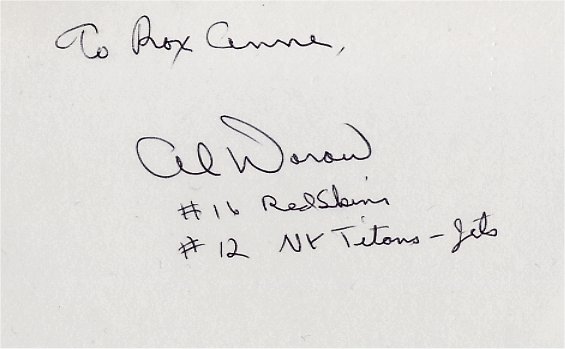 To Rox Anne,
Al Dorow
#16 RedSkins
#12 NY Titans - Jets